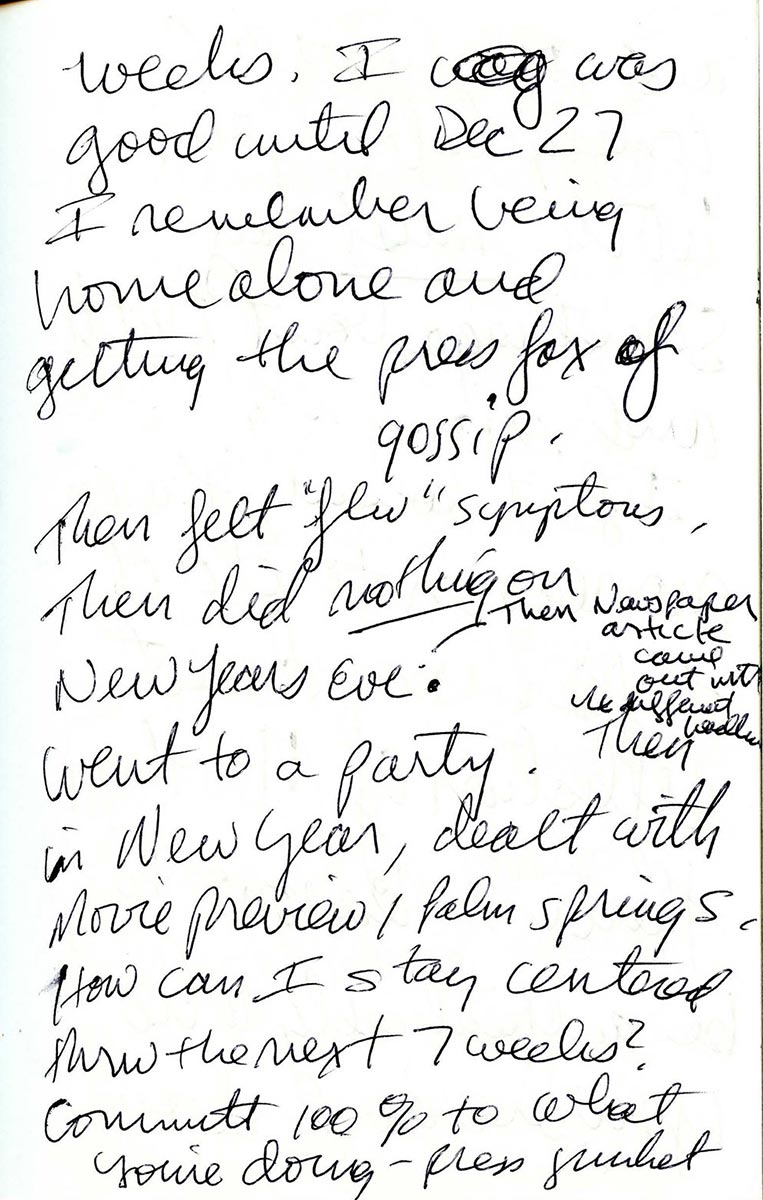 weeks. I was
good until Dec 27
I remember being
home alone and
getting the press fax of
gossip.
Then felt "flu" symptons,
Then did nothing on
Then Newspaper
article
came
out with
New Years Eve.
went to a party. Then
in New Year, dealt with
Movie preview / Palm Springs.
How can I stay centered
thru the next 7 weeks?
Committ 100% to what
you're doing - press junket